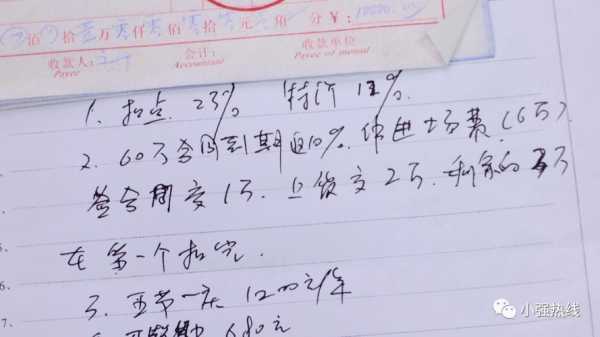 佰 拾壹万零仟零佰零拾零元零角 分 ¥: 10000.00
收款人: 会计: 收款单位
Payee Accountant Payee of mutual
1. 扣点 23% 特价 18%.
2. 60万合同到期返10%. 作进场费 (6万).
签合同交1万. 上货交2万. 剩余的3万
在第一个扣完.
3. 五节一庆 1200元/年
680元
5.
6.
7.
小强热线